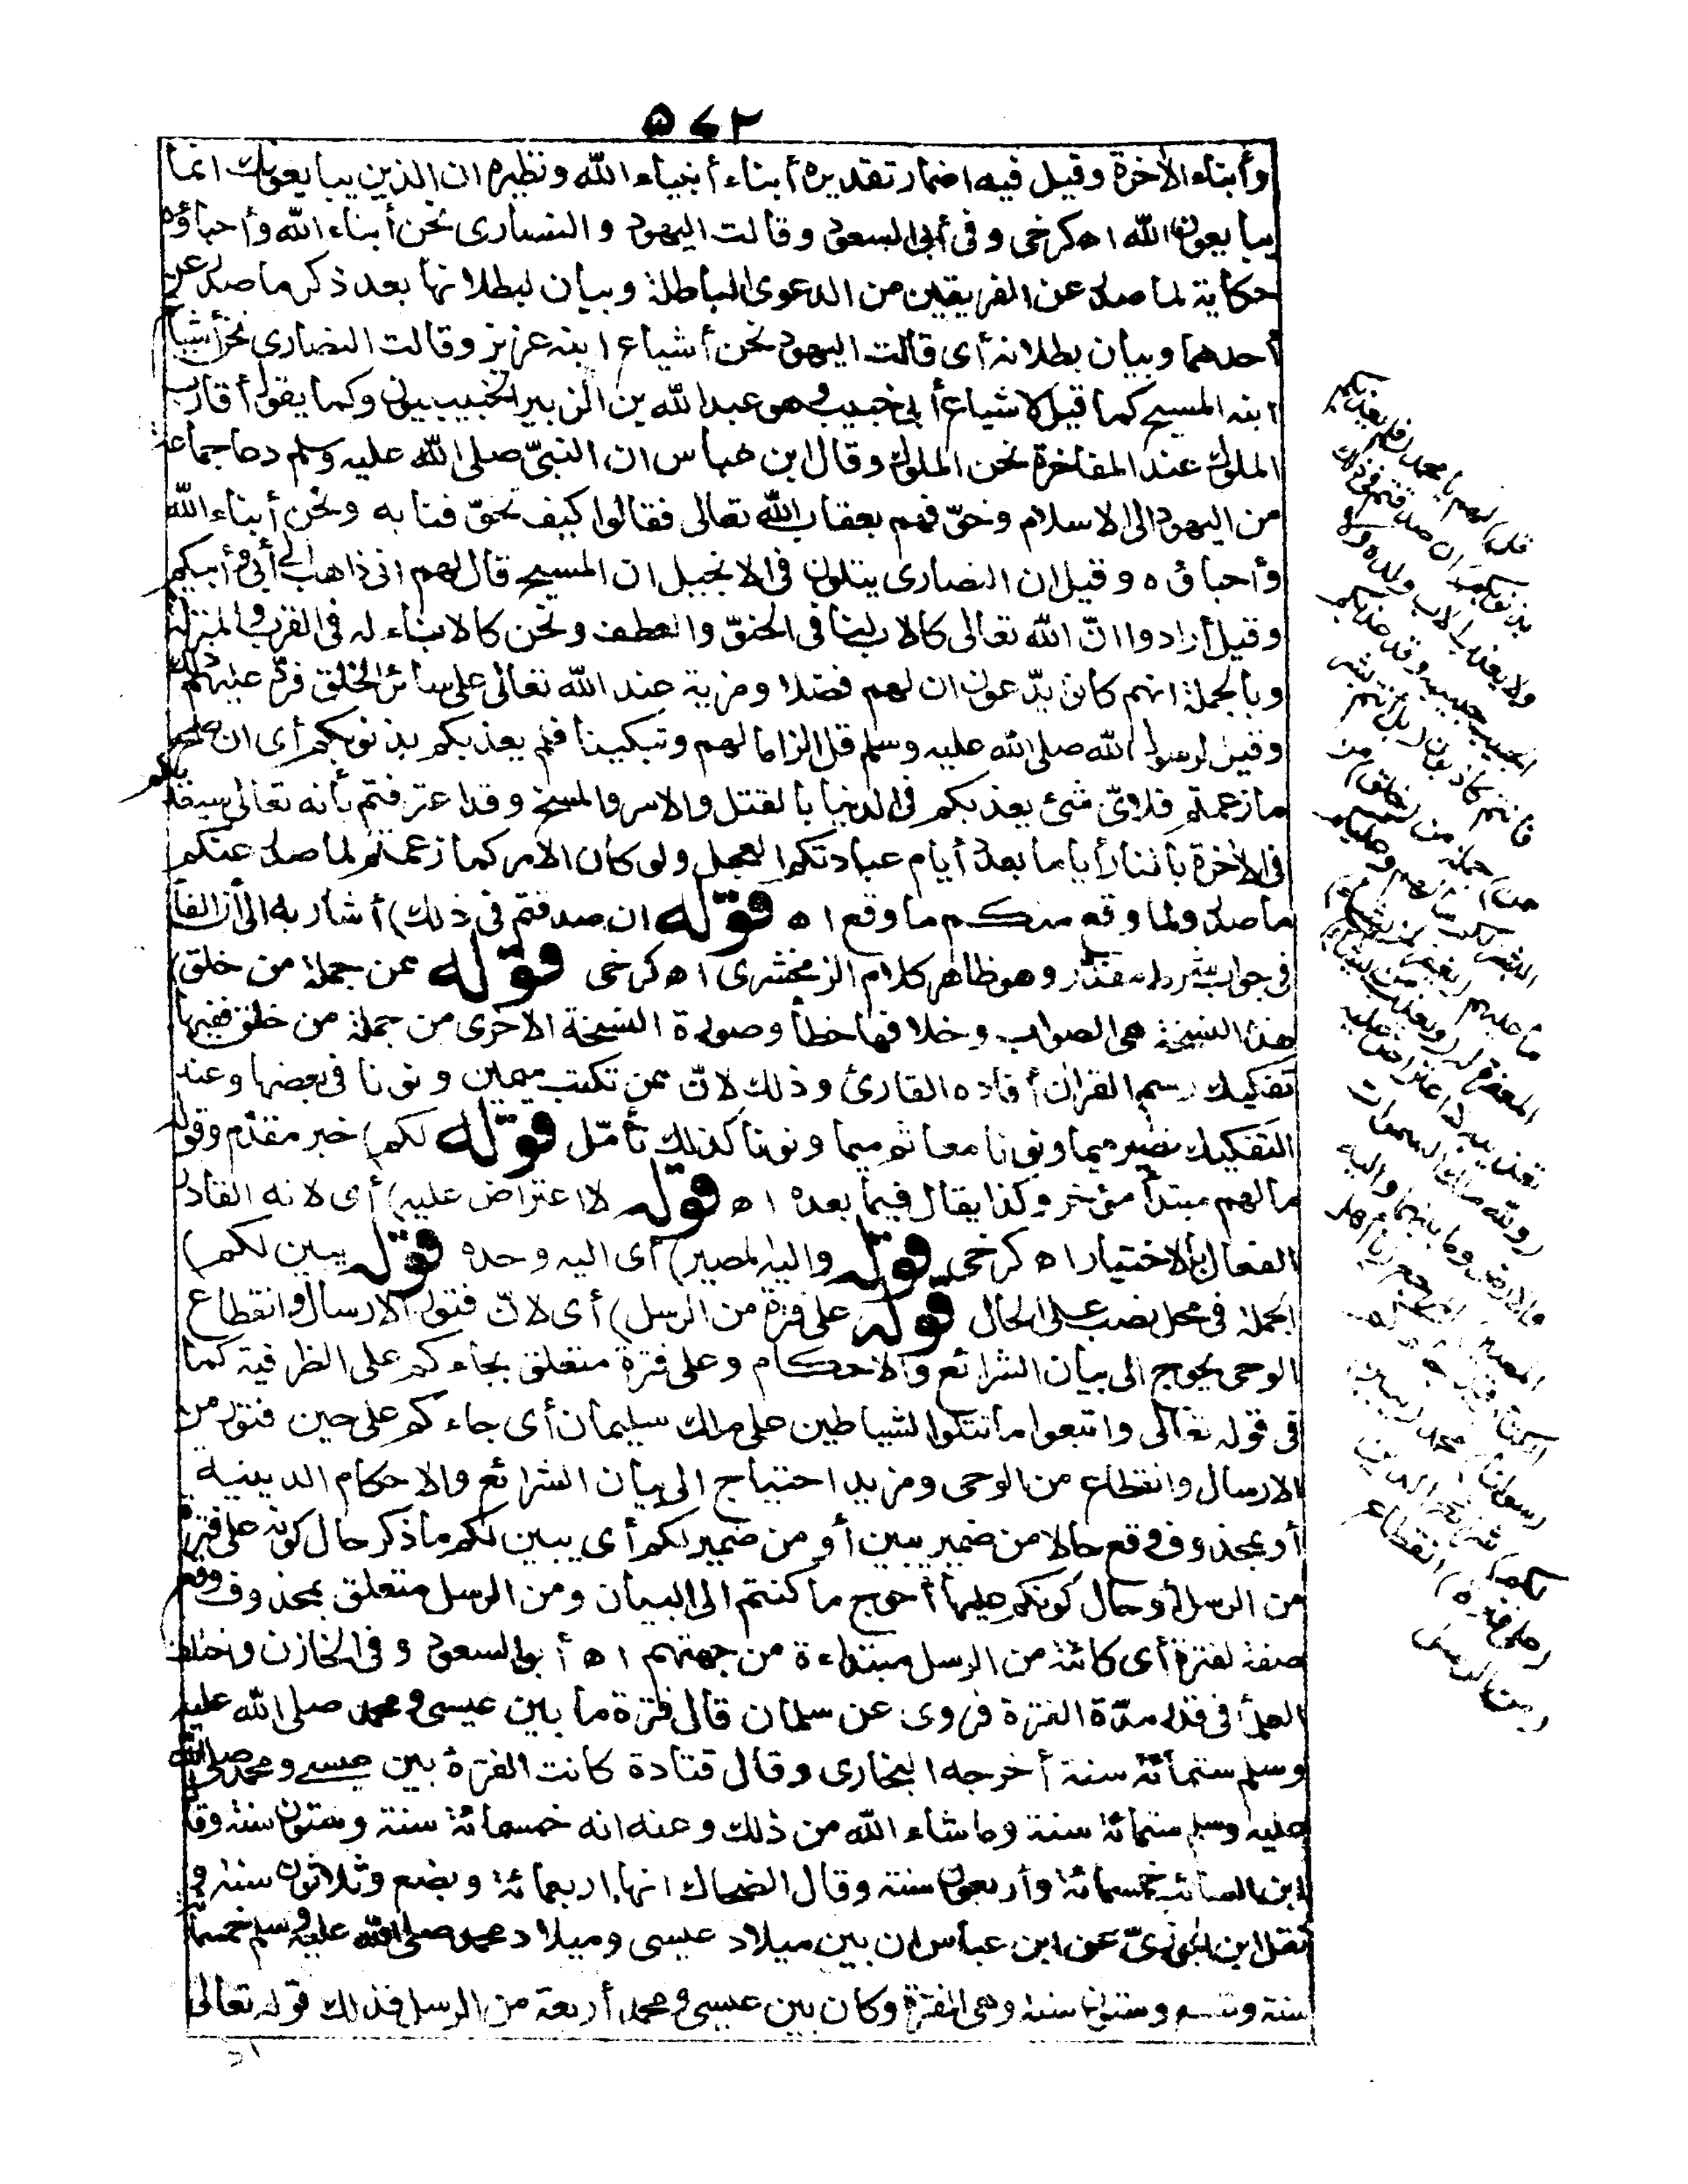 ٥٧٢
وأبناء الآخرة وقيل فيه اضمار تقديره أبناء أنبياء الله ونظيره ان الذين يبايعونك انما
يبايعون الله اه كرخى وفى أبى السعود وقالت اليهود والنصارى نحن أبناء الله وأحباؤه
حكاية لما صدر عن الفريقين من الدعوى الباطلة وبيان لبطلانها بعد ذكر ما صدر عن
أحدهما وبيان بطلانه أى قالت اليهود نحن أشياع ابنه عزيز وقالت النصارى نحن أشياع
ابنه المسيح كما قيل لاشياع أبى خبيب وهو عبد الله بن الزبير الخبيبيون وكما يقول أقارب
الملوك عند المفاخرة نحن الملوك وقال ابن عباس ان النبىّ صلى الله عليه وسلم دعا جماعة
من اليهود الى الاسلام وخوّفهم بعقاب الله تعالى فقالوا كيف تخوّفنا به ونحن أبناء الله
وأحباؤه وقيل ان النصارى يتلون فى الانجيل ان المسيح قال لهم انى ذاهب الى أبى وأبيكم
وقيل أرادوا انّ الله تعالى كالاب لنا فى الحنوّ والعطف ونحن كالابناء له فى القرب والمنزلة
وبالجملة انهم كانوا يدّعون ان لهم فضلا ومزية عند الله تعالى على سائر الخلق فردّ عليهم ذلك
وقيل لرسول الله صلى الله عليه وسلم قل الزاما لهم وتبكيتا فلم يعذبكم بذنوبكم أى ان صح
ما زعمتم فلاىّ شئ يعذبكم فى الدنيا بالقتل والاسر والمسخ وقد اعترفتم بأنه تعالى سيعذبكم
فى الآخرة بالنار أياما بعدد أيام عبادتكم العجل ولو كان الامر كما زعمتم لما صدر عنكم
ما صدر ولما وقع منكم ما وقع اه قوله ان صدقتم فى ذلك) أشار به الى أن الفاء
فى جواب شرط مقدر وهو ظاهر كلام الزمخشرى اه كرخى قوله ممن جملة من خلق)
هذه النسخة هى الصواب وخلافها خطأ وصورة النسخة الاخرى من جملة من خلق ففيها
تفكيك رسم القرآن أفاده القارئ وذلك لانّ ممن تكتب بميمين ونونا فى بعضها وعند
التفكيك تصير ميما ونونا معا ثم ميما ونونا كذلك تأمّل قوله لكم) خبر مقدّم وقوله
مالهم مبتدأ مؤخر وكذا يقال فيما بعده اه قوله لا اعتراض عليه) أى لانه القادر
الفعال بالاختيار اه كرخى قوله واليه المصير) أى اليه وحده قوله يبين لكم)
الجملة فى محل نصب على الحال قوله على فترة من الرسل) أى لانّ فتور الارسال وانقطاع
الوحى يحوج الى بيان الشرائع والاحكام وعلى فترة متعلق بجاءكم على الظرفية كما
فى قوله تعالى واتبعوا ما تتلوا الشياطين على ملك سليمان أى جاءكم على حين فتور من
الارسال وانقطاع من الوحى ومزيد احتياج الى بيان الشرائع والاحكام الدينية
أو بمحذوف وقع حالا من ضمير يبين أو من ضمير لكم أى يبين لكم ما ذكر حال كونه على فترة
من الرسل أو حال كونكم عليها أحوج ما كنتم الى البيان ومن الرسل متعلق بمحذوف وقع
صفة لفترة أى كائنة من الرسل مبتدءة من جهتهم اه أبو السعود وفى الخازن واختلف
العلماء فى قدر مدّة الفترة فروى عن سلمان قال فترة ما بين عيسى ومحمد صلى الله عليه
وسلم ستمائة سنة أخرجه البخارى وقال قتادة كانت الفترة بين عيسى ومحمد صلى الله
عليه وسلم ستمائة سنة وما شاء الله من ذلك وعنه انه خمسمائة سنة وستون سنة وقال
ابن السائب خمسمائة وأربعون سنة وقال الضحاك انها اربعمائة وبضع وثلاثون سنة و
نقل ابن الجوزىّ عن ابن عباس ان بين ميلاد عيسى وميلاد محمد صلى الله عليه وسلم خمسمائة
سنة وتسع وستون سنة وهى الفترة وكان بين عيسى ومحمد أربعة من الرسل فذلك قوله تعالى
قل) لهم يا محمد (فلم يعذبكم
بذنوبكم) ان صدقتم فى ذلك
ولا يعذب الاب ولده ولا
الحبيب حبيبه وقد عذبكم
فأنتم كاذبون (بل أنتم بشر
ممن) جملة من (خلق) من
البشر لكم ما لهم وعليكم
ما عليهم (يغفر لمن يشاء)
المغفرة له (ويعذب من يشاء)
تعذيبه لا اعتراض عليه
(ولله ملك السموات
والارض وما بينهما واليه
المصير) المرجع (يا أهل
الكتاب قد جاءكم
رسولنا) محمد (يبين
لكم) شرائع الدين
(على فترة) انقطاع
(من الرسل